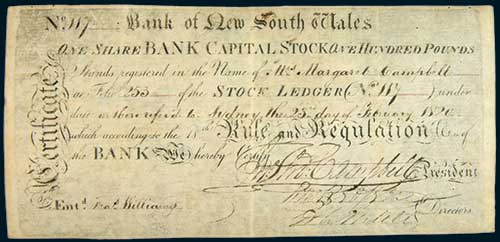 No. 117 Bank of New South Wales
ONE SHARE BANK CAPITAL STOCK ONE HUNDRED POUNDS
Stands registered in the Name of Mrs. Margaret Campbell
at Folio 253 of the STOCK LEDGER (No. 117) under
date as there referred to Sydney, the 25th day of February 1820
which according to the 18th Rule and Regulation of
the BANK We hereby Certify
Certificate
Jno. Campbell
President
Directors
Entd. Fra. Williams